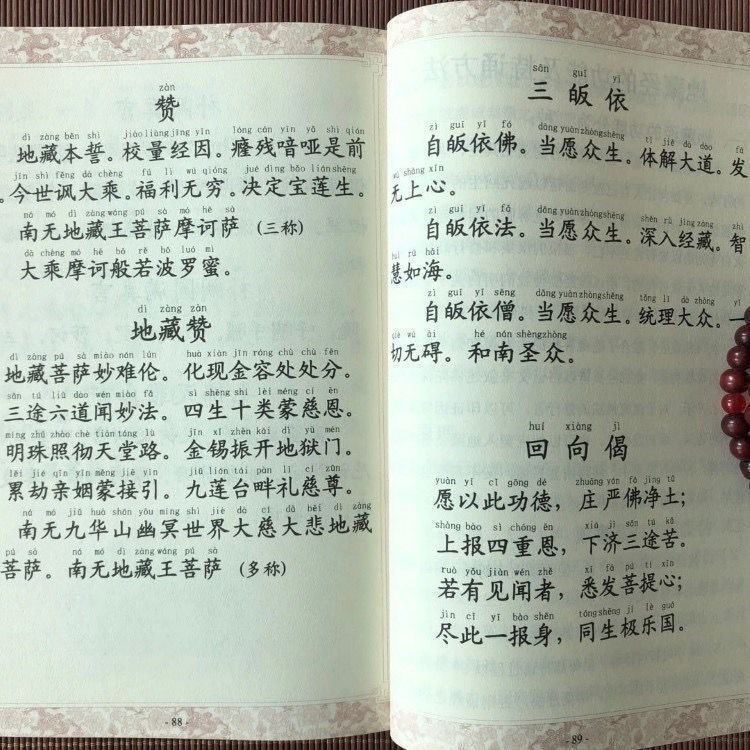 zàn
赞
dì zàng běn shì jiào liàng jīng yīn lóng cán yīn yǎ shì qián
地藏本誓。校量经因。癃残喑哑是前
jīn shì fěng dà chéng fú lì wú qióng jué dìng bǎo lián shēng
。今世讽大乘。福利无穷。决定宝莲生。
nā mó dì zàng wáng pú sà mó hē sà
南无地藏王菩萨摩诃萨（三称）
dà chéng mó hē bō rě bō luó mì
大乘摩诃般若波罗蜜。
dì zàng zàn
地藏赞
dì zàng pú sà miào nán lún huà xiàn jīn róng chù chù fēn
地藏菩萨妙难伦。化现金容处处分。
sān tú liù dào wén miào fǎ sì shēng shí lèi méng cí ēn
三途六道闻妙法。四生十类蒙慈恩。
míng zhū zhào chè tiān táng lù jīn xī zhèn kāi dì yù mén
明珠照彻天堂路。金锡振开地狱门。
lěi jié qīn yīn méng jiē yǐn jiǔ lián tái pàn lǐ cí zūn
累劫亲姻蒙接引。九莲台畔礼慈尊。
nā mó jiǔ huá shān yōu míng shì jiè dà cí dà bēi dì zàng
南无九华山幽冥世界大慈大悲地藏
pú sà nā mó dì zàng wáng pú sà
菩萨。南无地藏王菩萨（多称）
- 88 -
sān guī yī
三皈依
zì guī yī fó dāng yuàn zhòng shēng tǐ jiě dà dào fā
自皈依佛。当愿众生。体解大道。发
wú shàng xīn
无上心。
zì guī yī fǎ dāng yuàn zhòng shēng shēn rù jīng zàng zhì
自皈依法。当愿众生。深入经藏。智
huì rú hǎi
慧如海。
zì guī yī sēng dāng yuàn zhòng shēng tǒng lǐ dà zhòng yī
自皈依僧。当愿众生。统理大众。一
qiè wú ài hé nán shèng zhòng
切无碍。和南圣众。
huí xiàng jì
回向偈
yuàn yǐ cǐ gōng dé zhuāng yán fó jìng tǔ
愿以此功德，庄严佛净土；
shàng bào sì chóng ēn xià jì sān tú kǔ
上报四重恩，下济三途苦。
ruò yǒu jiàn wén zhě xī fā pú tí xīn
若有见闻者，悉发菩提心；
jìn cǐ yī bào shēn tóng shēng jí lè guó
尽此一报身，同生极乐国。
- 89 -